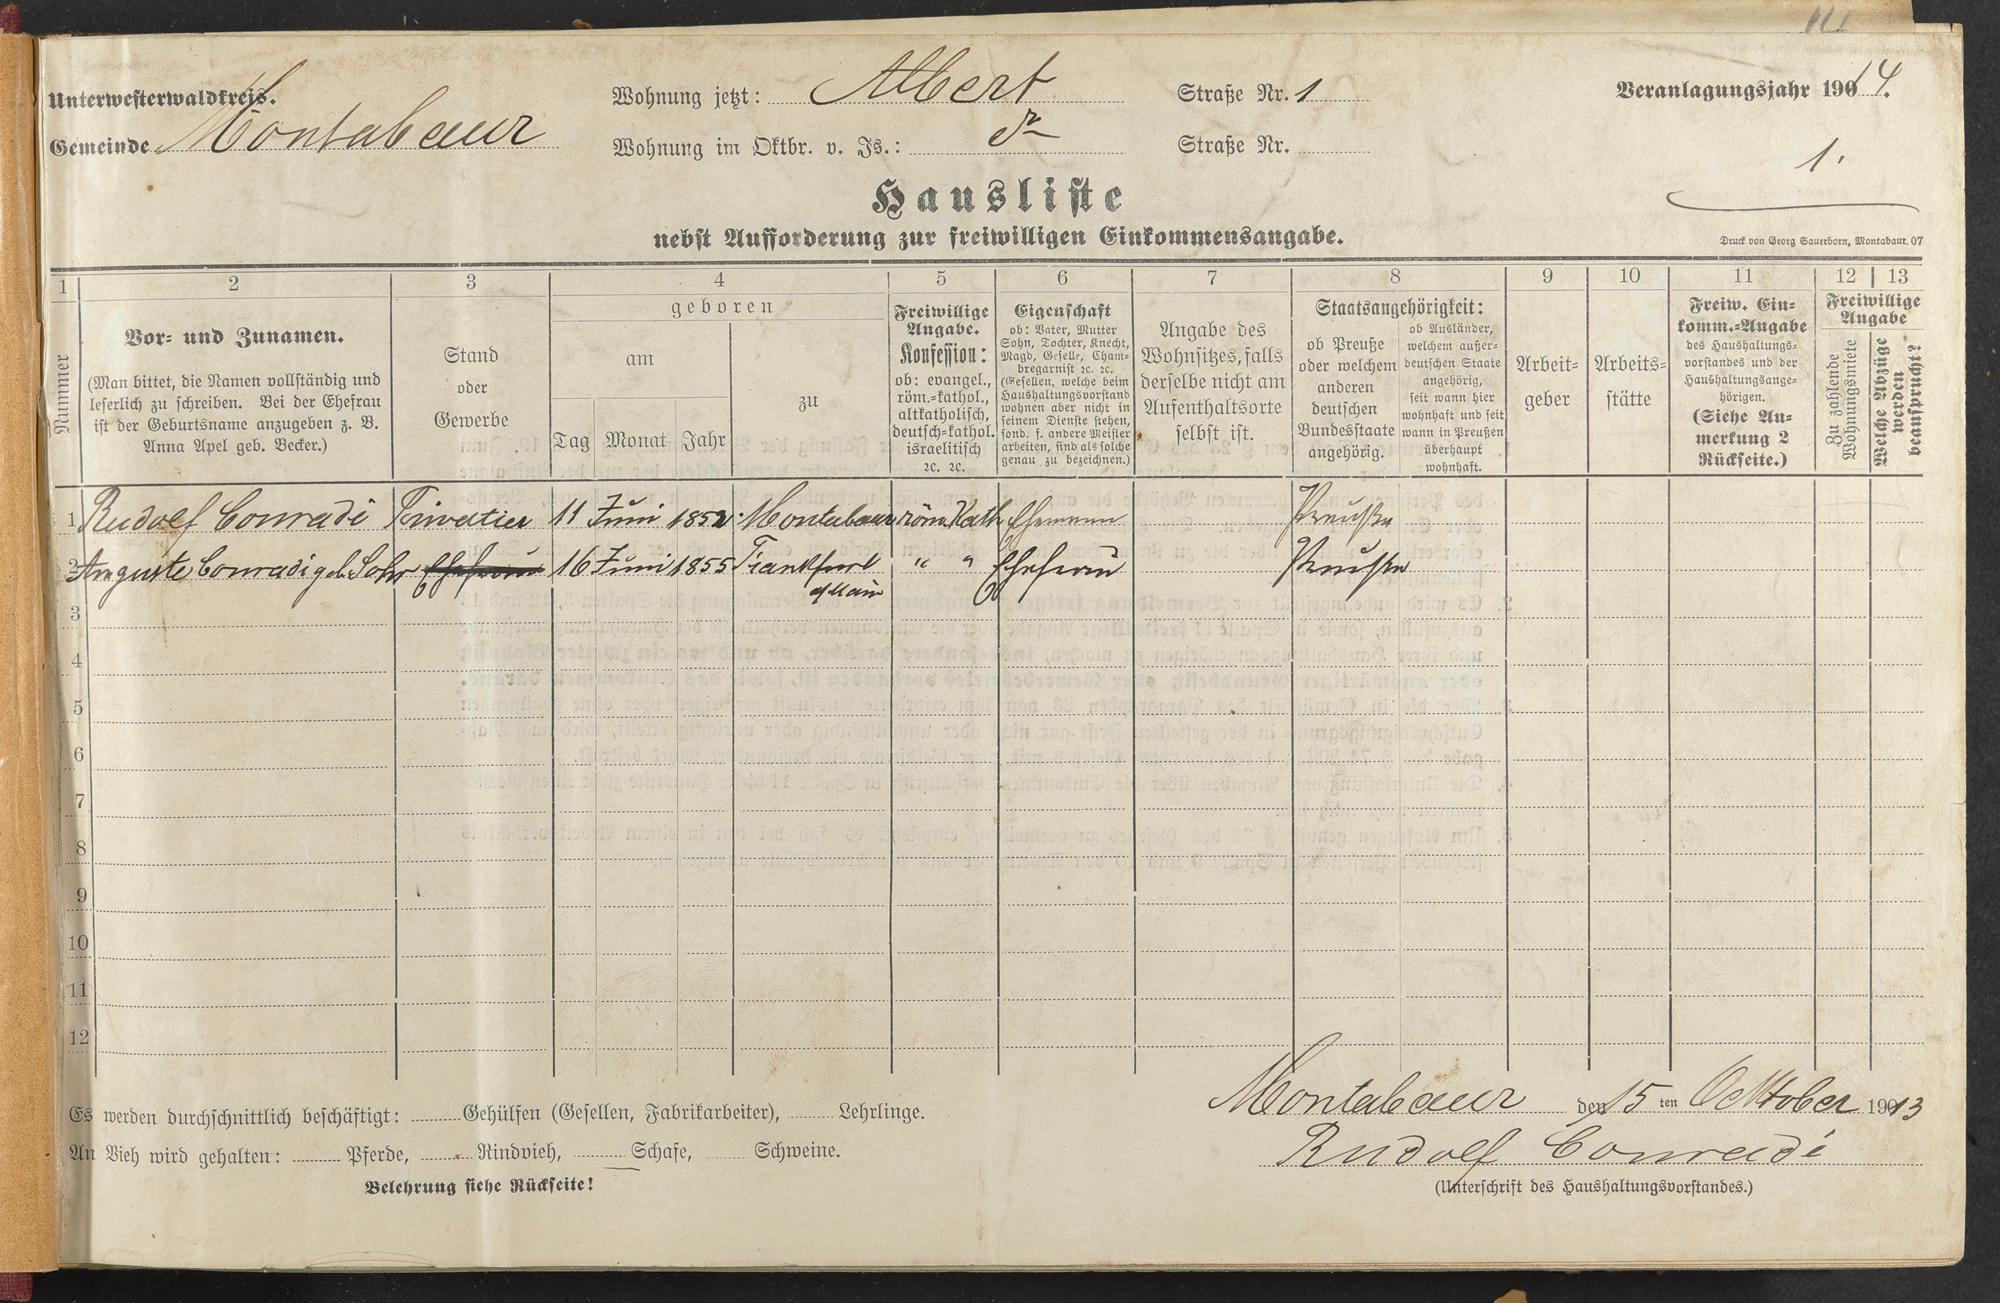 Unterwesterwaldkreis.
Gemeinde Montabaur
Wohnung jetzt: Albert Straße Nr. 1
Wohnung im Oktbr. v. Js.: do Straße Nr.
Veranlagungsjahr 1914.
1.
Hausliste
nebst Aufforderung zur freiwilligen Einkommensangabe.
Druck von Georg Sauerborn, Montabaur. 07
1 2 3 4 5 6 7 8 9 10 11 12 13
Nummer
Vor- und Zunamen.
(Man bittet, die Namen vollständig und
leserlich zu schreiben. Bei der Ehefrau
ist der Geburtsname anzugeben z. B.
Anna Apel geb. Becker.)
Stand
oder
Gewerbe
geboren
am
Tag Monat Jahr
zu
Freiwillige
Angabe.
Konfession:
ob: evangel.,
röm.-kathol.,
altkatholisch,
deutsch-kathol.
israelitisch
ꝛc. ꝛc.
Eigenschaft
ob: Vater, Mutter
Sohn, Tochter, Knecht,
Magd, Geselle, Cham-
bregarnist ꝛc. ꝛc.
(Gesellen, welche beim
Haushaltungsvorstand
wohnen aber nicht in
seinem Dienste stehen,
sond. f. andere Meister
arbeiten, sind als solche
genau zu bezeichnen.)
Angabe des
Wohnsitzes, falls
derselbe nicht am
Aufenthaltsorte
selbst ist.
Staatsangehörigkeit:
ob Preuße
oder welchem
anderen
deutschen
Bundesstaate
angehörig.
ob Ausländer,
welchem außer-
deutschen Staate
angehörig,
seit wann hier
wohnhaft und seit
wann in Preußen
überhaupt
wohnhaft.
Arbeit-
geber
Arbeits-
stätte
Freiw. Ein-
komm.-Angabe
des Haushaltungs-
vorstandes und der
Haushaltungsange-
hörigen.
(Siehe An-
merkung 2
Rückseite.)
Freiwillige
Angabe
Zu zahlende
Wohnungsmiete
Welche Abzüge
werden
beansprucht?
1 Rudolf Conradi Privatier 11 Juni 1852. Montabaur röm. Kath Ehemann Preuße
2 Auguste Conradi geb. Sohr Ehefrau 16 Juni 1855 Frankfurt " " Ehefrau Preuße
a/Main
3
4
5
6
7
8
9
10
11
12
Es werden durchschnittlich beschäftigt: Gehülfen (Gesellen, Fabrikarbeiter), Lehrlinge.
An Vieh wird gehalten: Pferde, Rindvieh, Schafe, Schweine.
Belehrung siehe Rückseite!
Montabaur den 15 ten Oktober 1913
Rudolf Conradi
(Unterschrift des Haushaltungsvorstandes.)